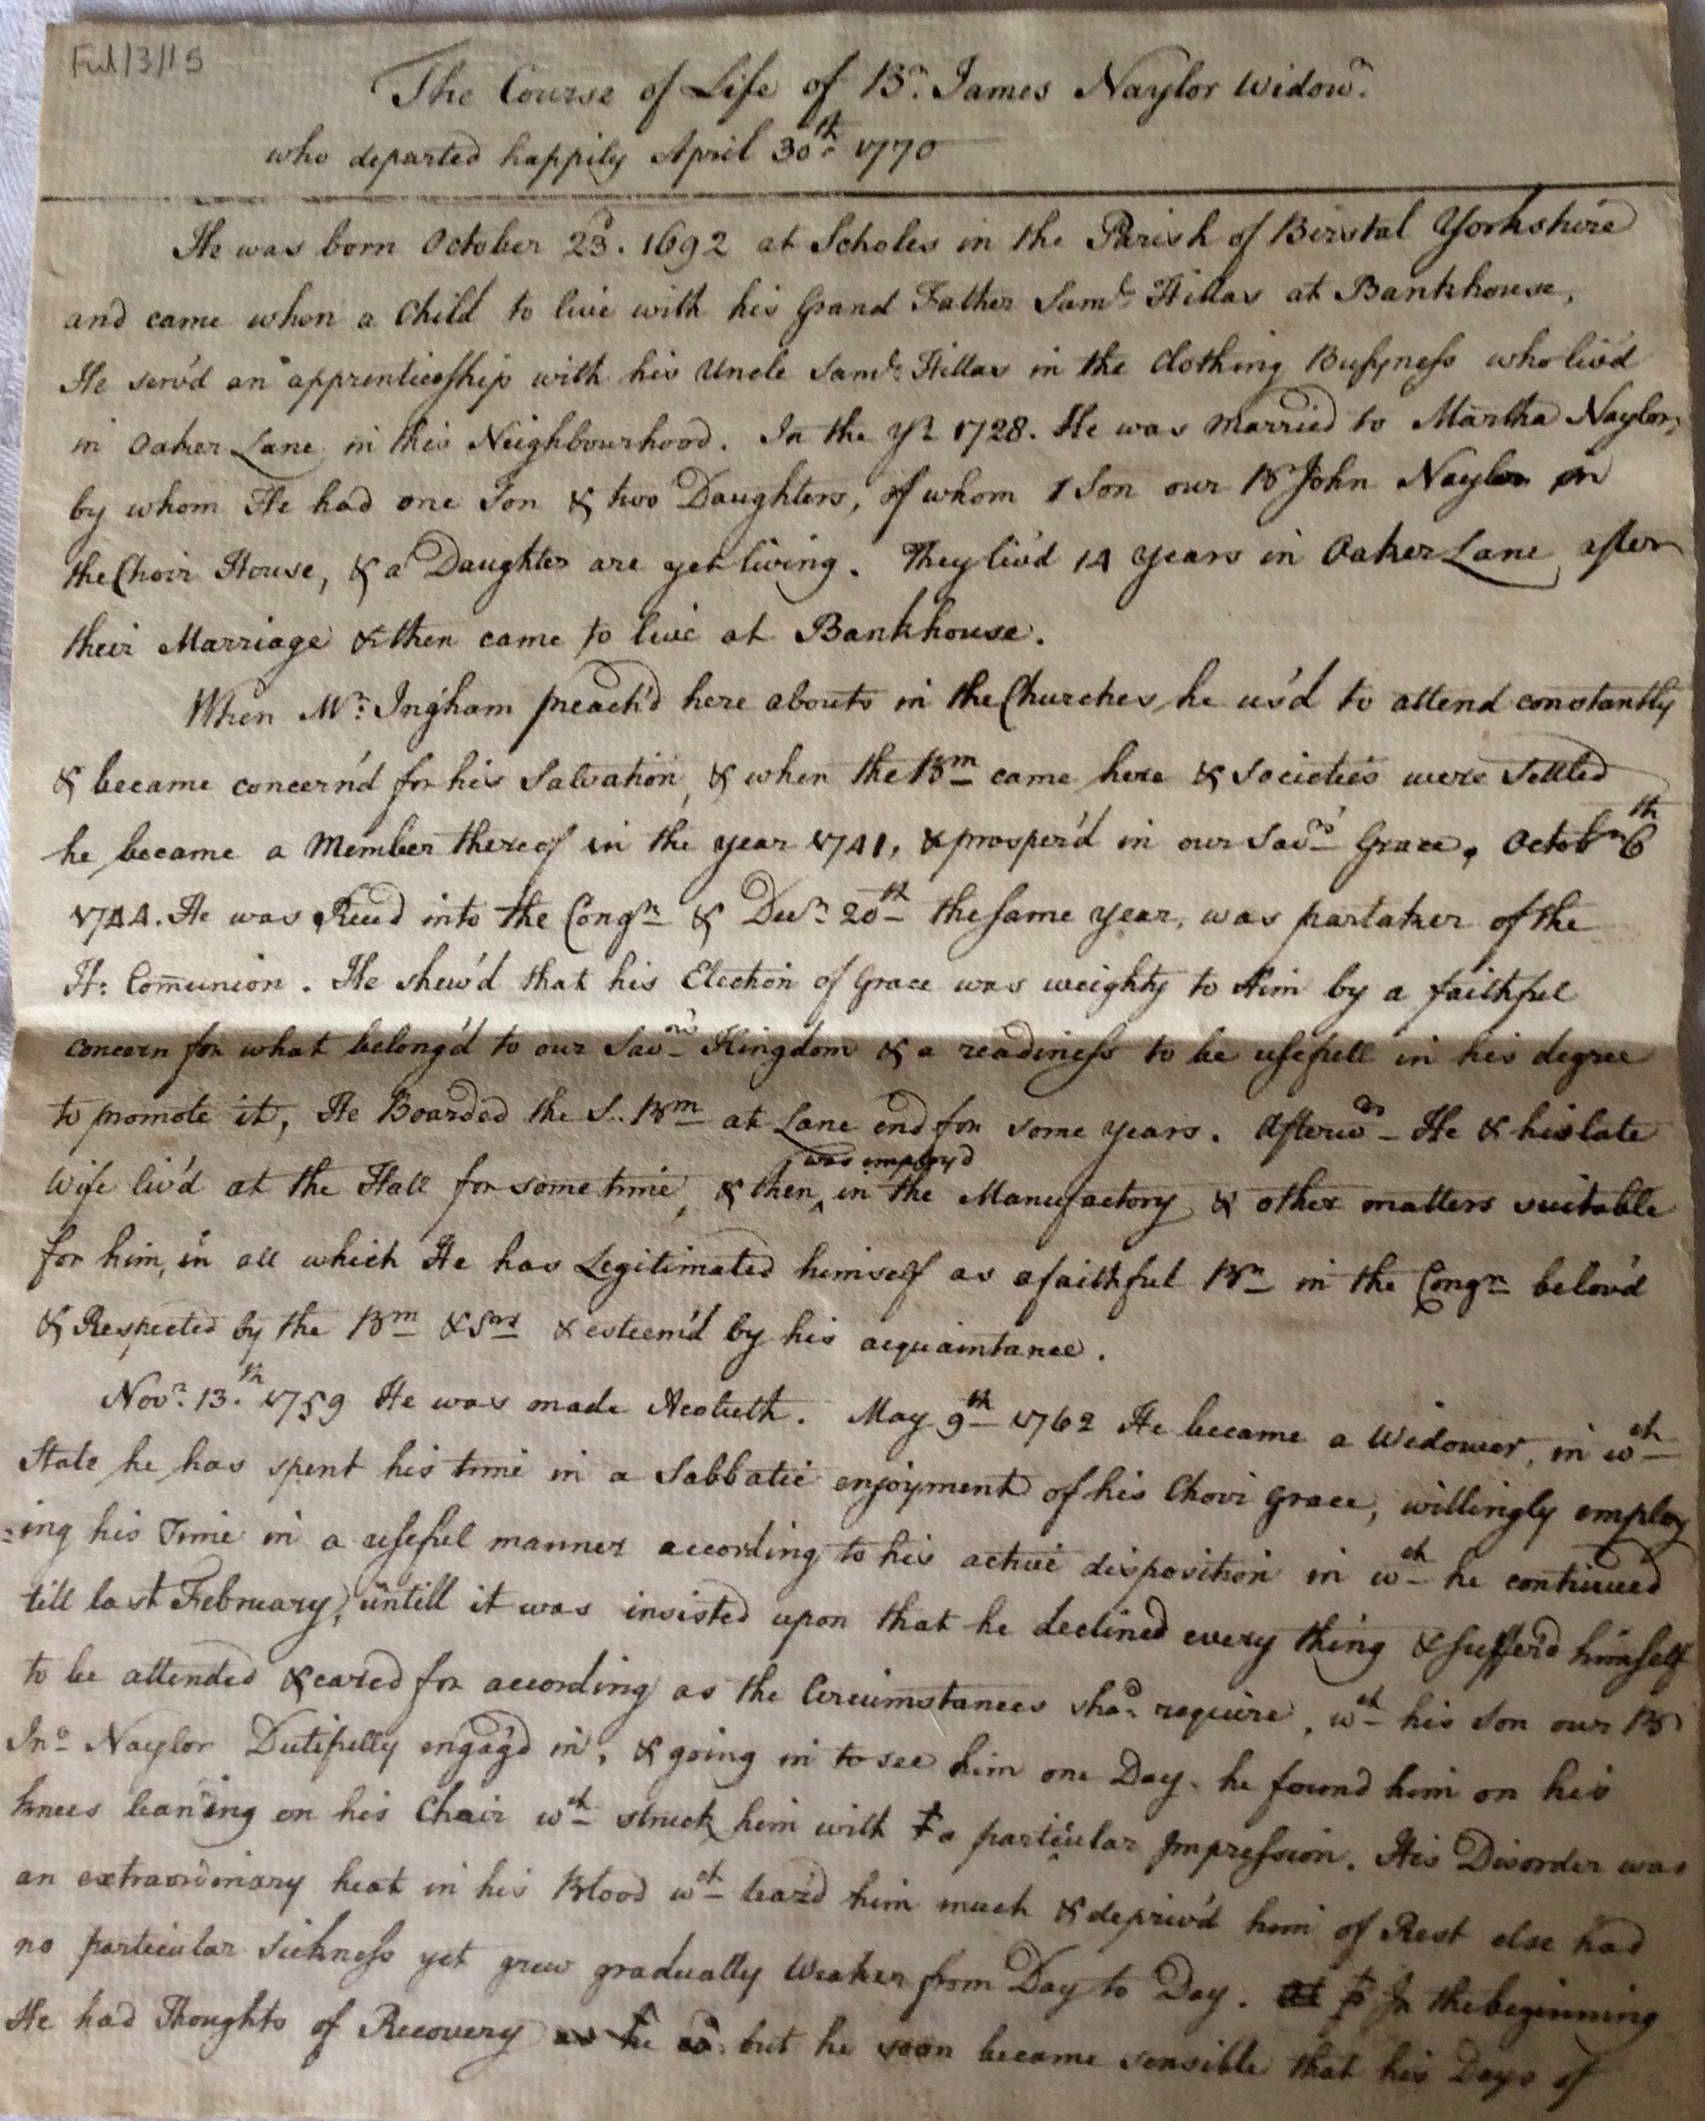 Ful/3/15
The Course of Life of Br. James Naylor Widowr.
who departed happily April 30th. 1770
He was born October 23d. 1692 at Scholes in the Parish of Birstal Yorkshire
and came when a Child to live with his Grand Father Saml. Hillas at Bankhouse,
He serv'd an apprenticeship with his Uncle Saml. Hillas in the Clothing Bussyness who liv'd
in Oaker Lane in this Neighbourhood. In the Yr. 1728. He was married to Martha Naylor,
by whom He had one Son & two Daughters, of whom 1 Son our Br John Naylor in
the Choir House, & a Daughter are yet living. They liv'd 14 years in Oaker Lane after
their Marriage & then came to live at Bankhouse.
When Mr. Ingham preach'd here abouts in the Churches he us'd to attend constantly
& became concern'd for his Salvation, & when the Brn came here & Societies were settled
he became a Member thereof in the year 1741, & prosper'd in our Savrs Grace. Octobr 6th
1744. He was Recd into the Congn & Decr 20th the same year, was partaker of the
H: Com̄union. He shew'd that his Election of Grace was weighty to Him by a faithful
concern for what belong'd to our Savrs Kingdom & a readiness to be usefull in his degree
to promote it, He Boarded the S. Brn at Lane end for some years. Afterwds He & his late
Wife liv'd at the Hall for some time, & then ^was employ'd in the Manufactory & other matters suitable
for him, in all which He has Legitimated himself as a faithful Br in the Congn belov'd
& Respected by the Brn & Srs & esteem'd by his acquaintance.
Novr. 13th. 1759 He was made Acoluth. May 9th 1762 He became a Widower, in wch
State he has spent his time in a Sabbatic enjoyment of his Choir Grace, willingly employ
=ing his Time in a useful manner according to his active disposition in wch he continued
till last February, untill it was insisted upon that he declined every thing & suffer'd himself
to be attended & cared for according as the Circumstances shod. require, wch his Son our Br
Jno. Naylor Dutifully engag'd in, & going in to see him one Day he found him on his
knees leaning on his Chair wch struck him with a particular Impression. His Disorder was
an extraordinary heat in his Blood wch teaz'd him much & depriv'd him of Rest else had
no particular Sickness yet grew gradually Weaker from Day to Day. In the beginning
He had Thoughts of Recovery but he soon became sensible that his Days of